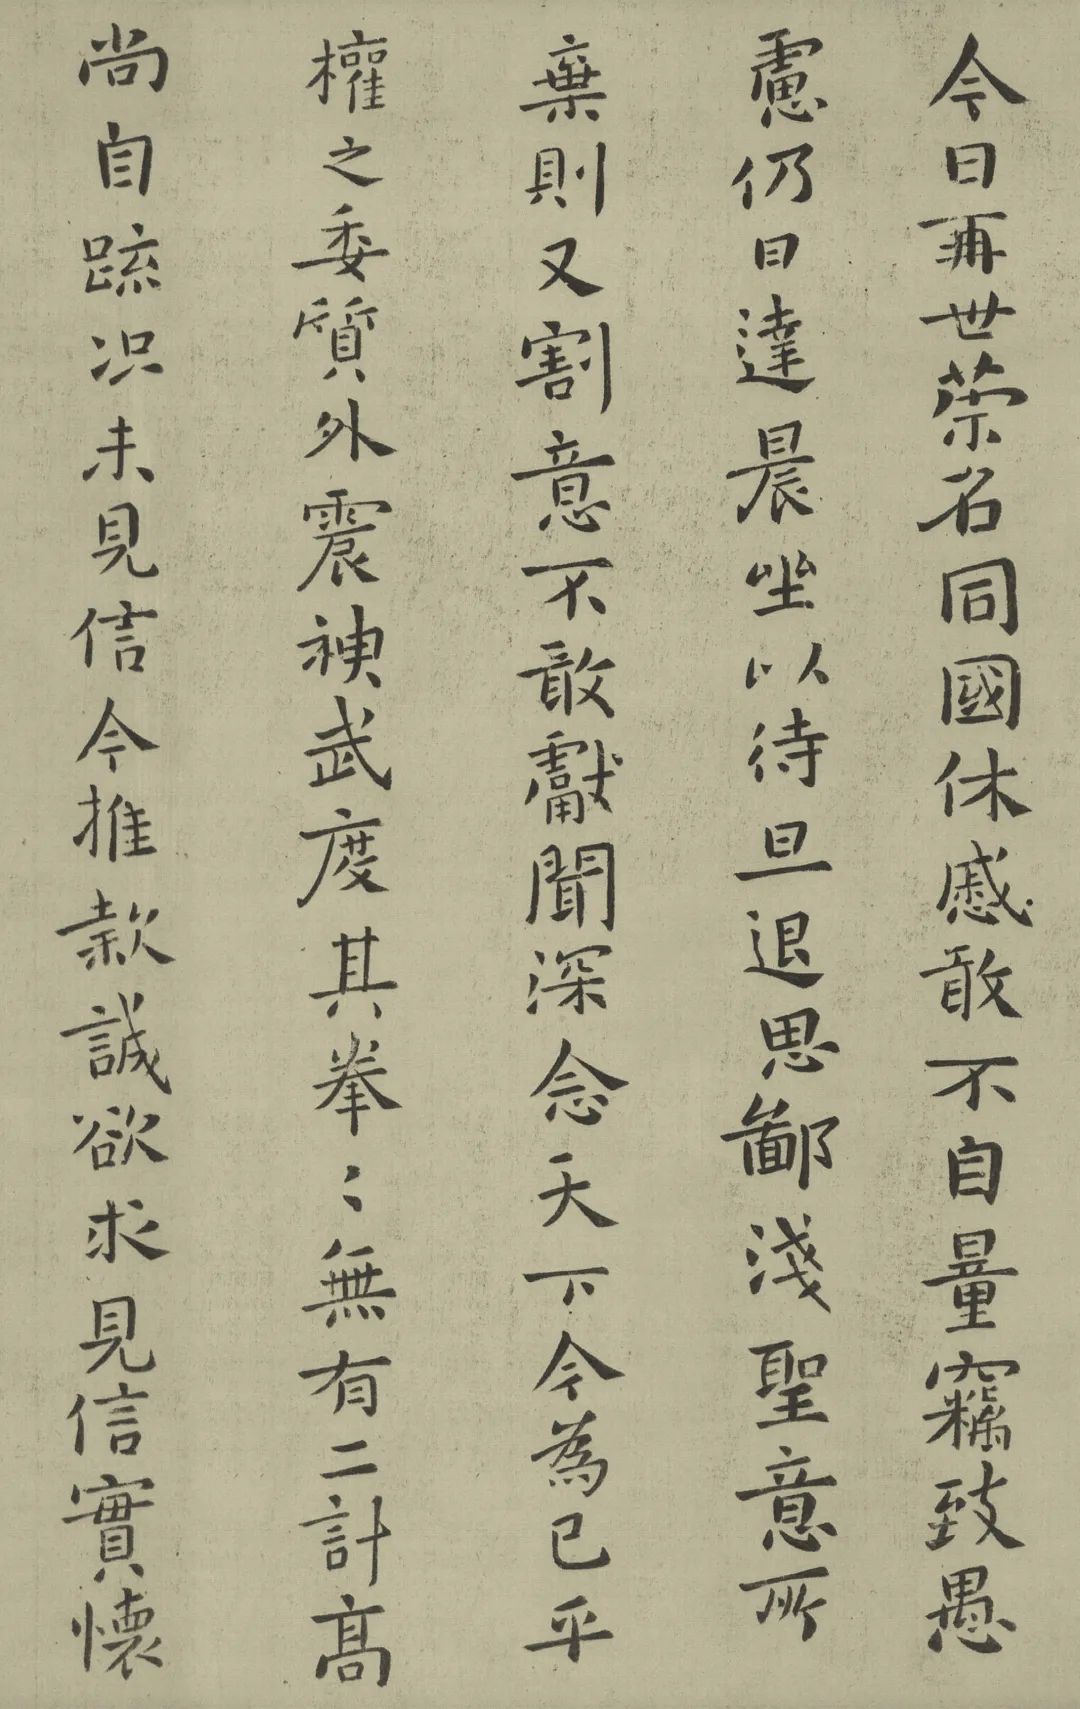 今日再世荣名同國休慼敢不自量竊致愚
慮仍日達晨坐以待旦退思鄙淺聖意所
棄則又割意不敢獻聞深念天下今為已平
權之委質外震神武度其拳〻無有二計高
尚自疏况未見信今推款誠欲求見信實懷